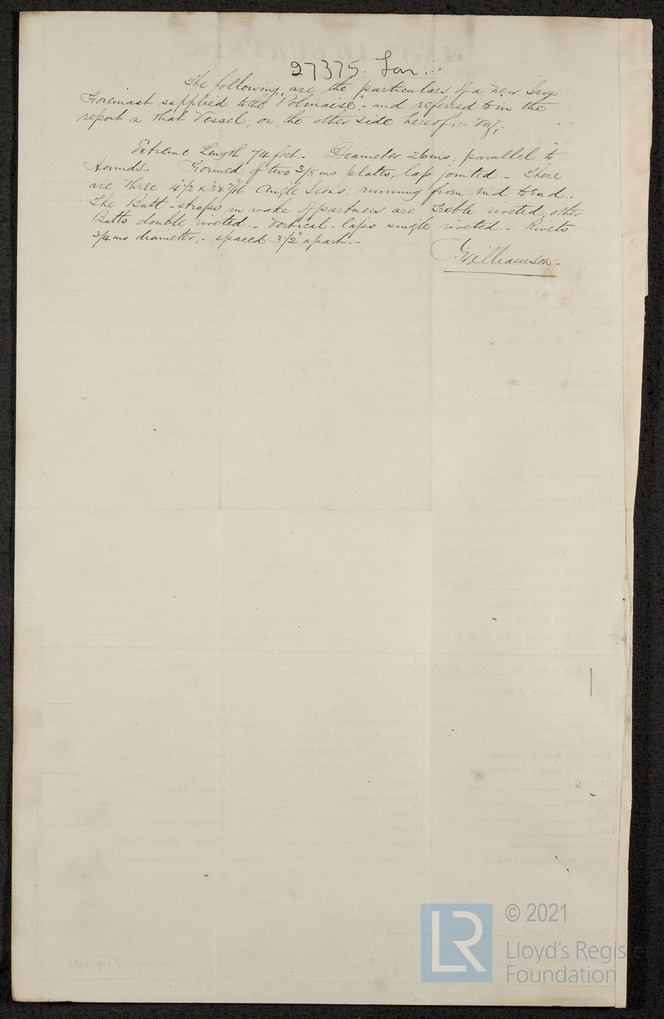 27375 Lon.
The following are the particulars of a new Iron
Foremast supplied the "Polmaise", and referred to in the
report on that Vessel, on the other side hereof:- Viz:-
Extreme Length 74 feet.- Diameter 26 ins; parallel to
Hounds. Formed of two 3/8 ins plates, lap jointed.- There
are three 4 1/2 x 3 x Angle Irons, running from end to end.-
The Butt-straps in wake of partners are treble riveted, other
Butts double riveted.- Vertical laps single riveted.- Rivets
3/4 ins diameter,- spaced 3 1/2 apart.-
Williamson
© 2021
LR
Lloyd's Register
Foundation